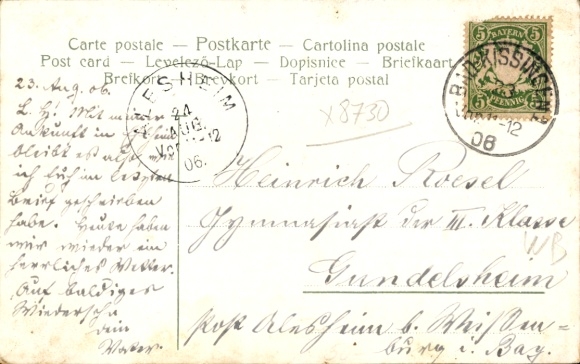 Carte postale — Postkarte — Cartolina postale
Post card — Levelező-Lap — Dopisnice — Briefkaart
Brefkort — Brevkort — Tarjeta postal
5 BAYERN 5
5 PFENNIG 5
BAD KISSINGEN
11-12
06
ALESHEIM
24
AUG.
12
06.
x8730
23. Aug. 06.
L. H! Mit meiner
Ankunft in
bleibt es also, wie
ich Euch im letzten
Brief geschrieben
habe. Heute haben
wir wieder ein
herrliches Wetter.
Auf baldiges
Wiedersehn
dein
Vater.
Heinrich Roesel
Gymnasiast der III. Klasse
WB
Gundelsheim
Post Alesheim b. Weißen-
burg i. Bay.